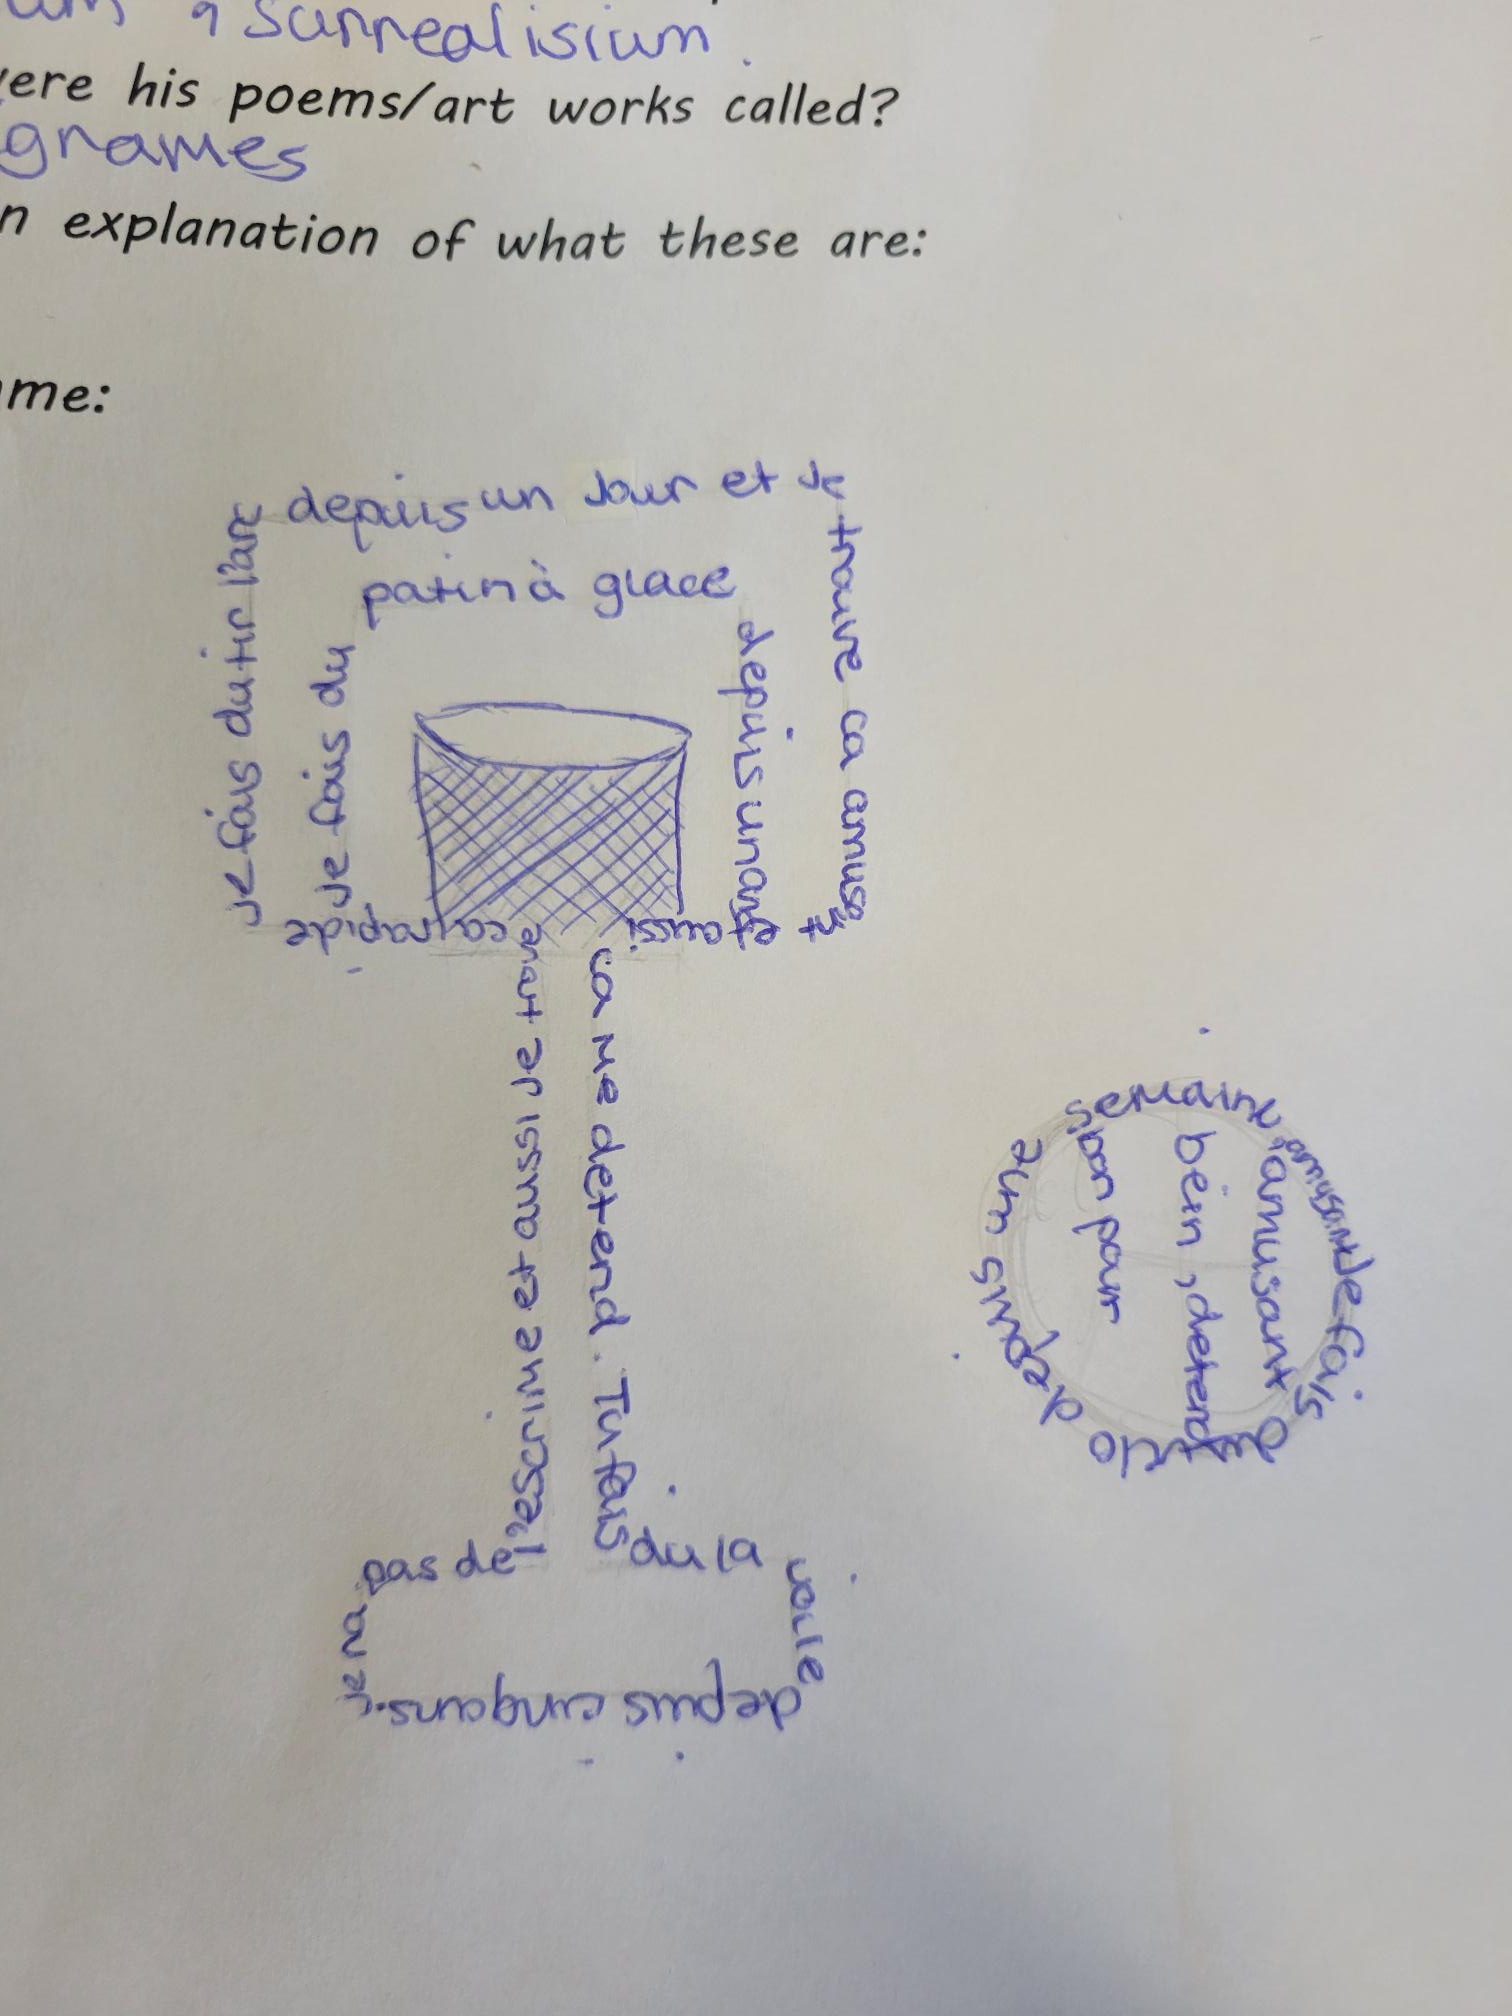 surrealisium.
ere his poems/art works called?
grames
n explanation of what these are:
me:
Je fais du tir l'arc
depuis un Jour et Je
trouve ca amusant
Je fais du
patin à glace
depuis un an
et aussi
ca me detend. Tu fais
du la
voile
depuis cinq ans.
pas de
l'escrime et aussi Je trouve
ca rapide
Je fais
du
velo depuis
une
semaine
amusant
bon pour
bein, detend
amusant